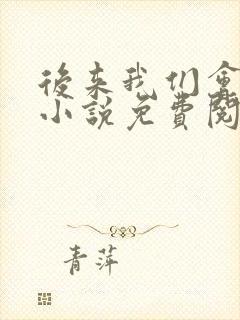 後来我们会
小說免費閱
青萍